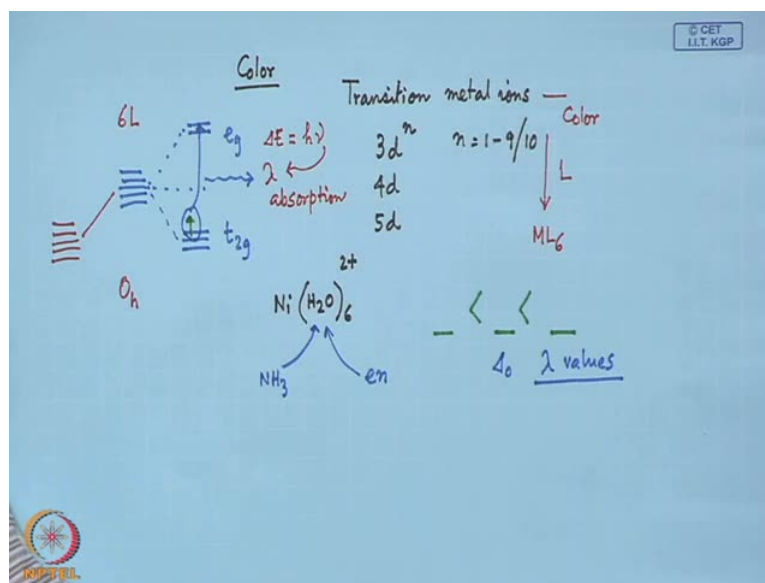 © CET
I.I.T. KGP
Color
Transition metal ions —
Color
6L
e_g
ΔE = hν
λ
absorption
t_2g
O_h
3d^n
n = 1 - 9/10
4d
5d
L
ML_6
Ni(H_2O)_6^2+
NH_3
en
_ < _ < _
Δ_o
λ values
NPTEL